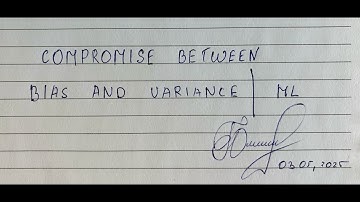 COMPROMISE BETWEEN
BIAS AND VARIANCE | ML
03.05.2025